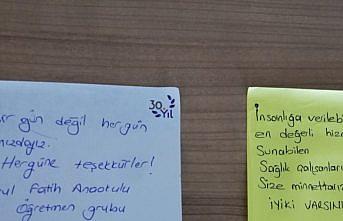 30.Yıl
gün değil hergün
Hergüne teşekkürler!
Fatih Anaokulu
Öğretmen grubu
İnsanlığa verilebi
en değerli hiz
Sunabilen
Sağlık çalışanları
Size minnettarız
İYİKİ VARSINI